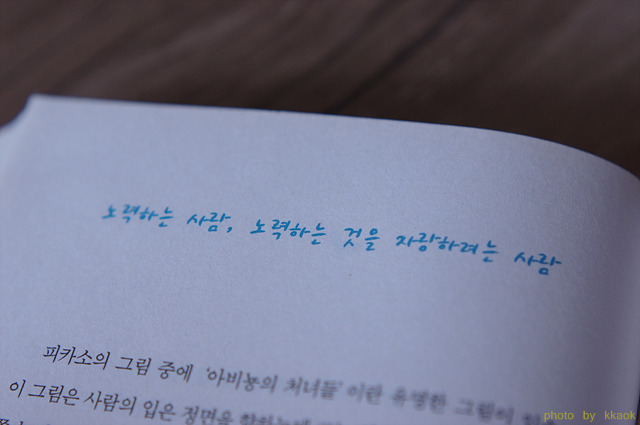 노력하는 사람, 노력하는 것을 자랑하려는 사람
피카소의 그림 중에 '아비뇽의 처녀들'이란 유명한 그림이
이 그림은 사람의 입은 정면을 향하는데
photo by kkaok